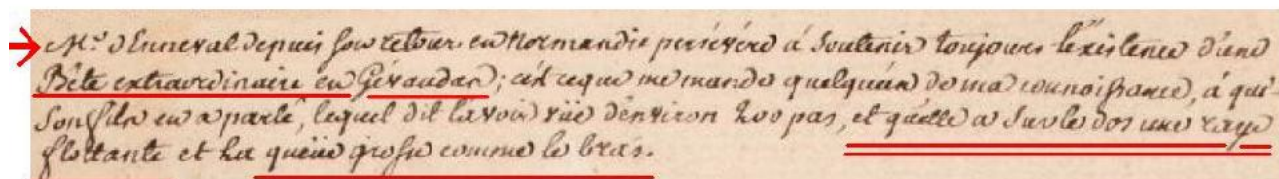 Mr. d'Enneval depuis son retour en Normandie persévére à soutenir toujours l'éxistence d'une
Bête extraordinaire en Gévaudan; c'est ce que me mande quelqu'un de ma connoissance, à qui
son fils en a parlé, lequel dit l'avoir vüe d'environ 200 pas, et qu'elle a sur le dos une raye
flottante et la queüe grosse comme le bras.